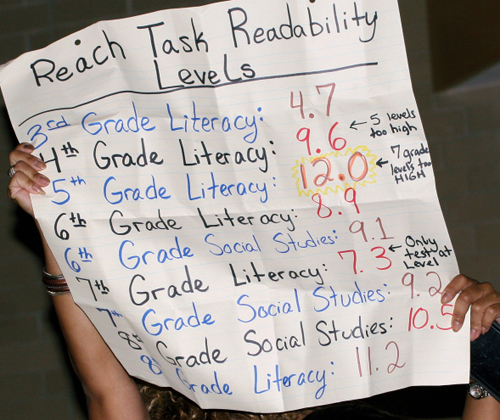 Reach Task Readability
Levels
3rd Grade Literacy: 4.7
4th Grade Literacy: 9.6 ← 5 levels too high
5th Grade Literacy: 12.0 ← 7 grade levels too HIGH
6th Grade Literacy: 8.9
6th Grade Social Studies: 9.1
7th Grade Literacy: 7.3 ← Only test at Level
7th Grade Social Studies: 9.2
8th Grade Social Studies: 10.5
8 Grade Literacy: 11.2